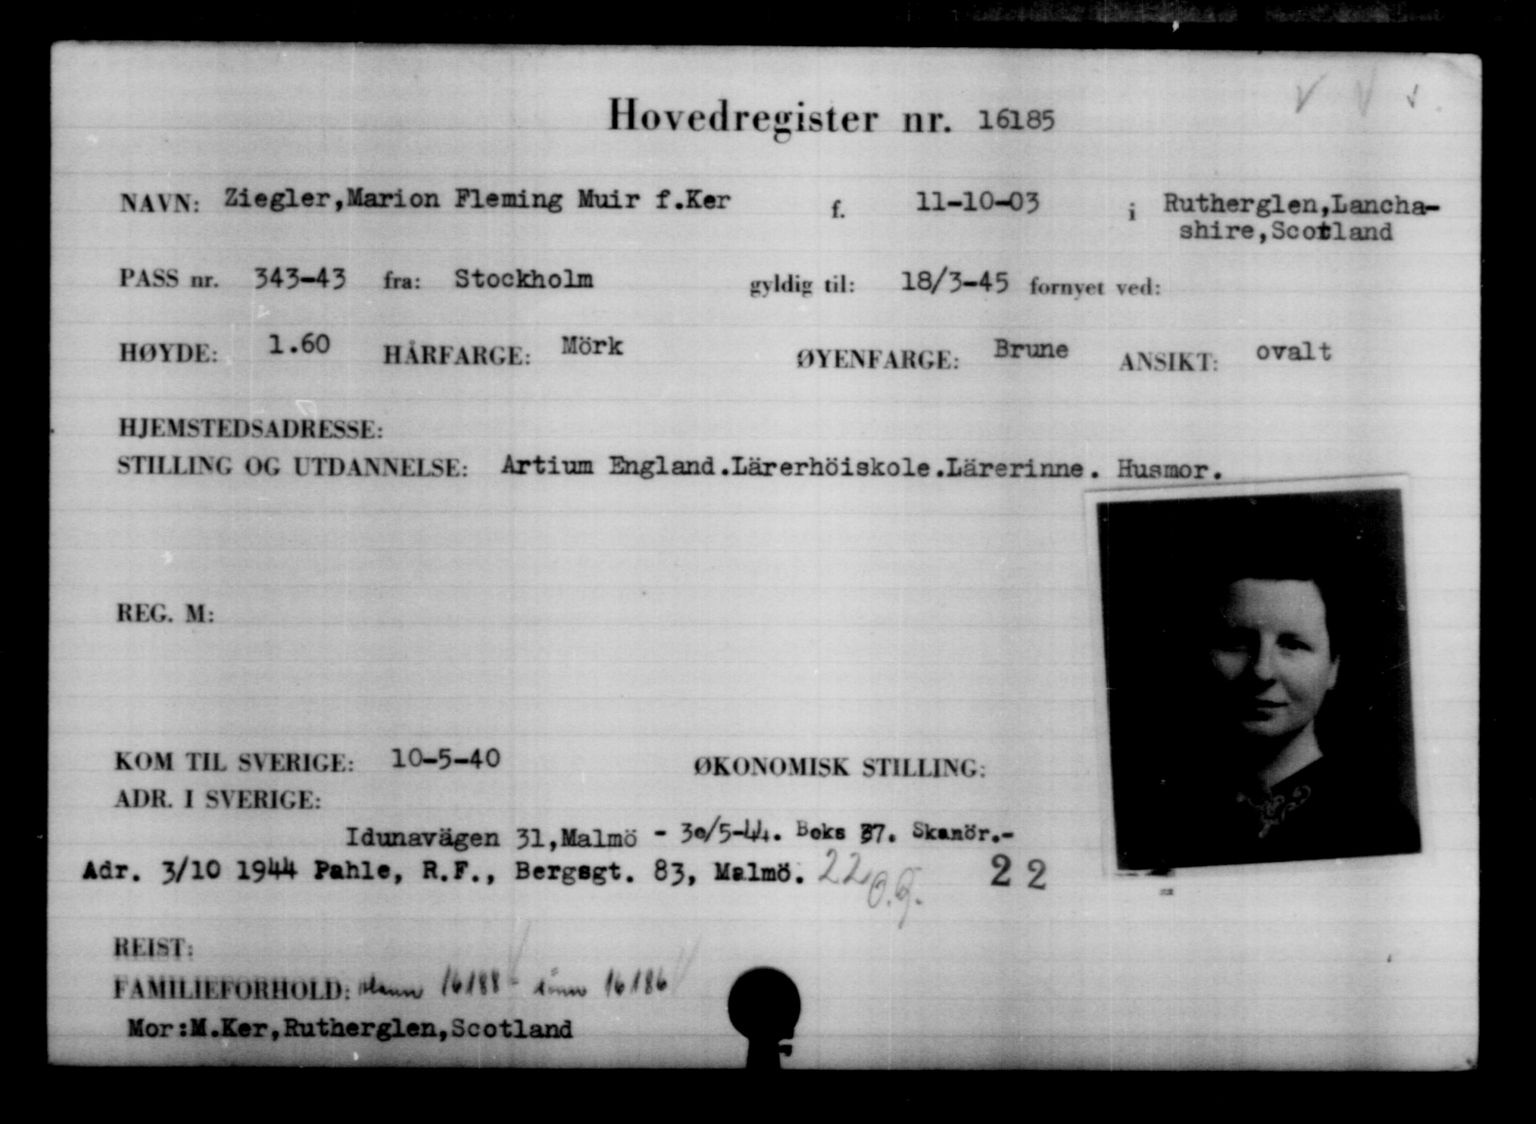 Hovedregister nr. 16185
NAVN: Ziegler,Marion Fleming Muir f.Ker f. 11-10-03 i Rutherglen,Lancha-
shire,Scotland
PASS nr. 343-43 fra: Stockholm gyldig til: 18/3-45 fornyet ved:
HØYDE: 1.60 HÅRFARGE: Mörk ØYENFARGE: Brune ANSIKT: ovalt
HJEMSTEDSADRESSE:
STILLING OG UTDANNELSE: Artium England.Lärerhöiskole.Lärerinne. Husmor.
REG. M:
KOM TIL SVERIGE: 10-5-40 ØKONOMISK STILLING:
ADR. I SVERIGE:
Idunavägen 31,Malmö - 30/5-44. Boks 37. Skanör.-
Adr. 3/10 1944 Pahle, R.F., Bergsgt. 83, Malmö. 22 2 2
REIST:
FAMILIEFORHOLD: Mann 16188 - sönn 16186
Mor:M.Ker,Rutherglen,Scotland